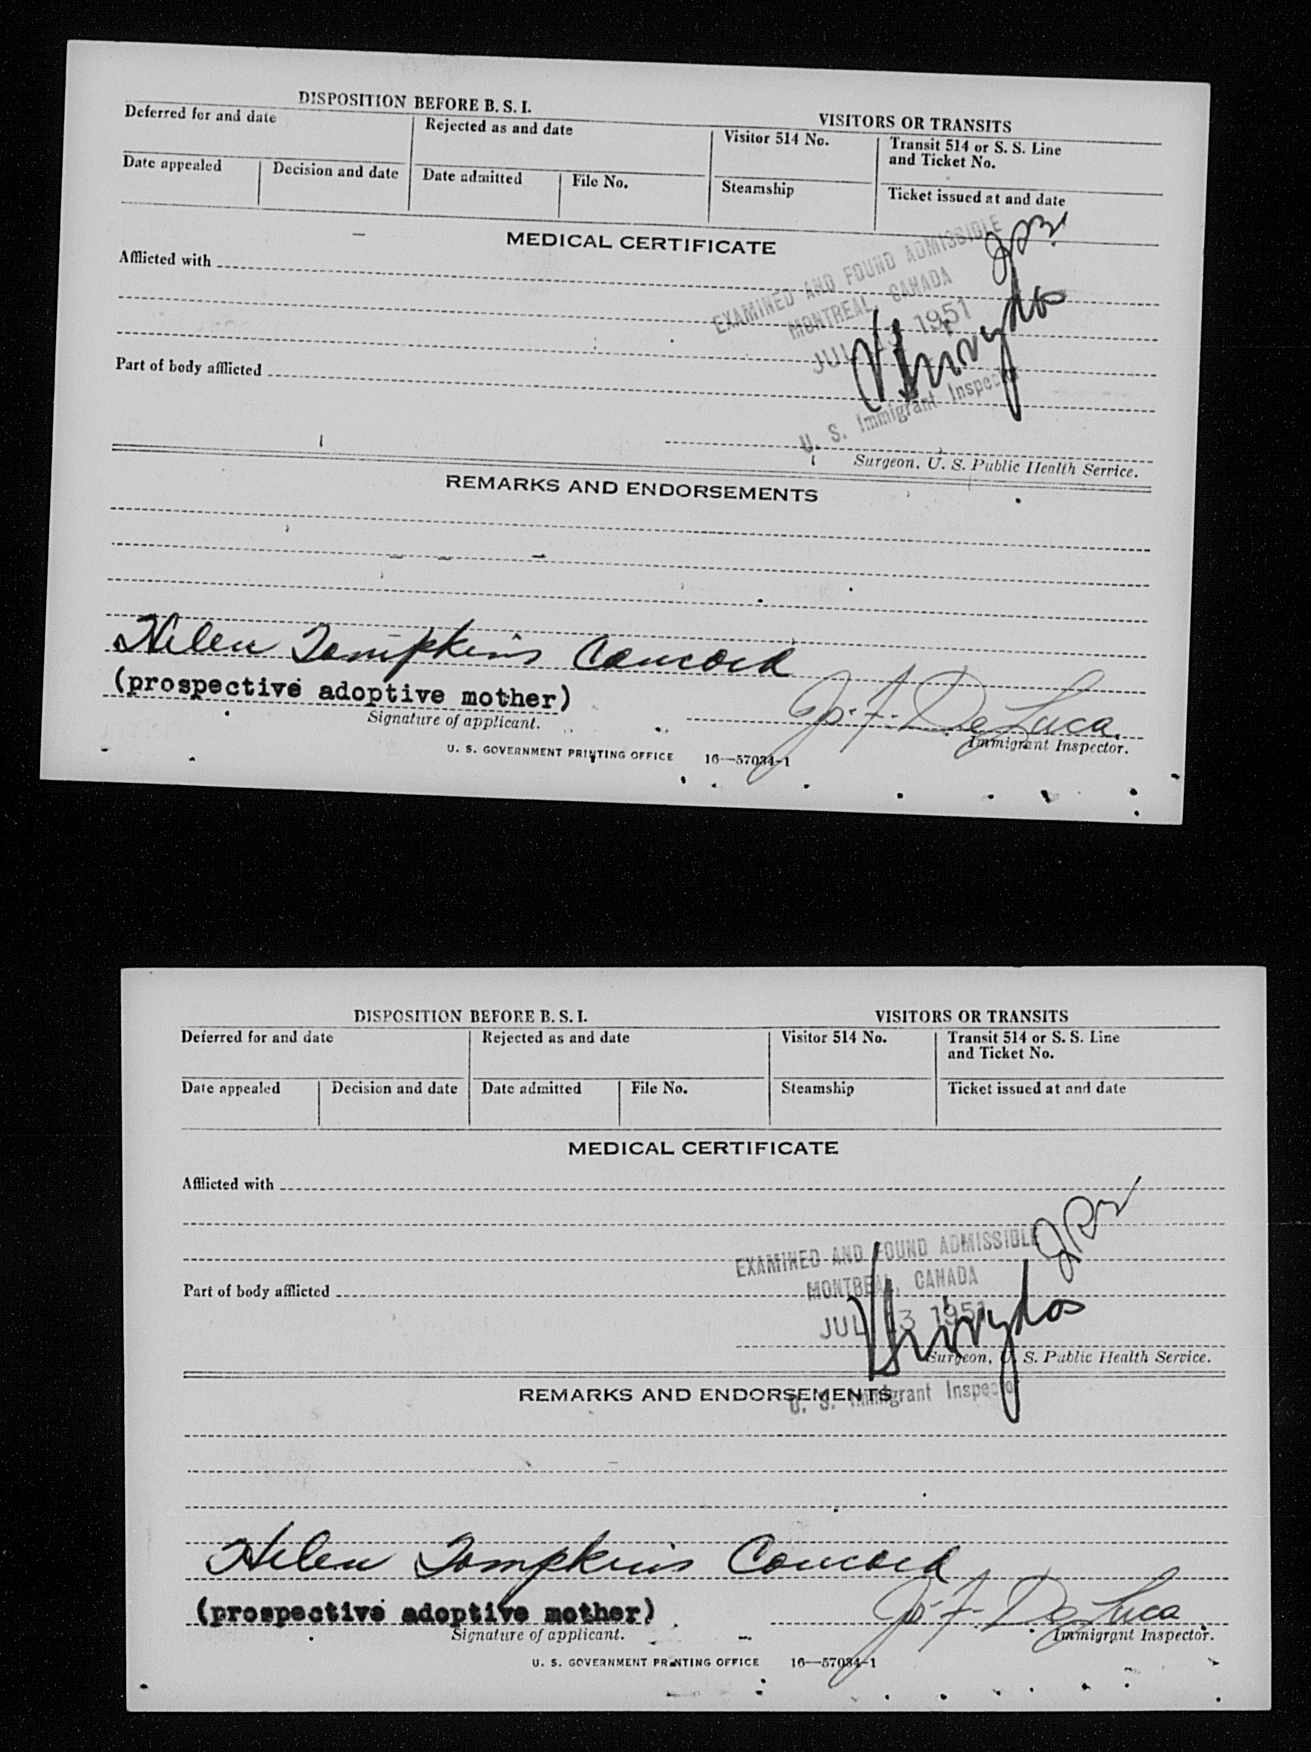 DISPOSITION BEFORE B. S. I.
VISITORS OR TRANSITS
Deferred for and date
Rejected as and date
Visitor 514 No.
Transit 514 or S. S. Line
and Ticket No.
Date appealed
Decision and date
Date admitted
File No.
Steamship
Ticket issued at and date
MEDICAL CERTIFICATE
Afflicted with
EXAMINED AND FOUND ADMISSIBLE
MONTREAL, CANADA
JUL 1951
U. S. Immigrant Inspector
Part of body afflicted
Surgeon, U. S. Public Health Service.
REMARKS AND ENDORSEMENTS
Helen Tompkins Concord
(prospective adoptive mother)
Signature of applicant.
Jos. F. De Luca
Immigrant Inspector.
U. S. GOVERNMENT PRINTING OFFICE 16—57034-1
DISPOSITION BEFORE B. S. I.
VISITORS OR TRANSITS
Deferred for and date
Rejected as and date
Visitor 514 No.
Transit 514 or S. S. Line
and Ticket No.
Date appealed
Decision and date
Date admitted
File No.
Steamship
Ticket issued at and date
MEDICAL CERTIFICATE
Afflicted with
EXAMINED AND FOUND ADMISSIBLE
MONTREAL, CANADA
JUL 1951
Part of body afflicted
Surgeon, U. S. Public Health Service.
REMARKS AND ENDORSEMENTS
U. S. Immigrant Inspector
Helen Tompkins Concord
(prospective adoptive mother)
Signature of applicant.
Jos. F. De Luca
Immigrant Inspector.
U. S. GOVERNMENT PRINTING OFFICE 16—57034-1